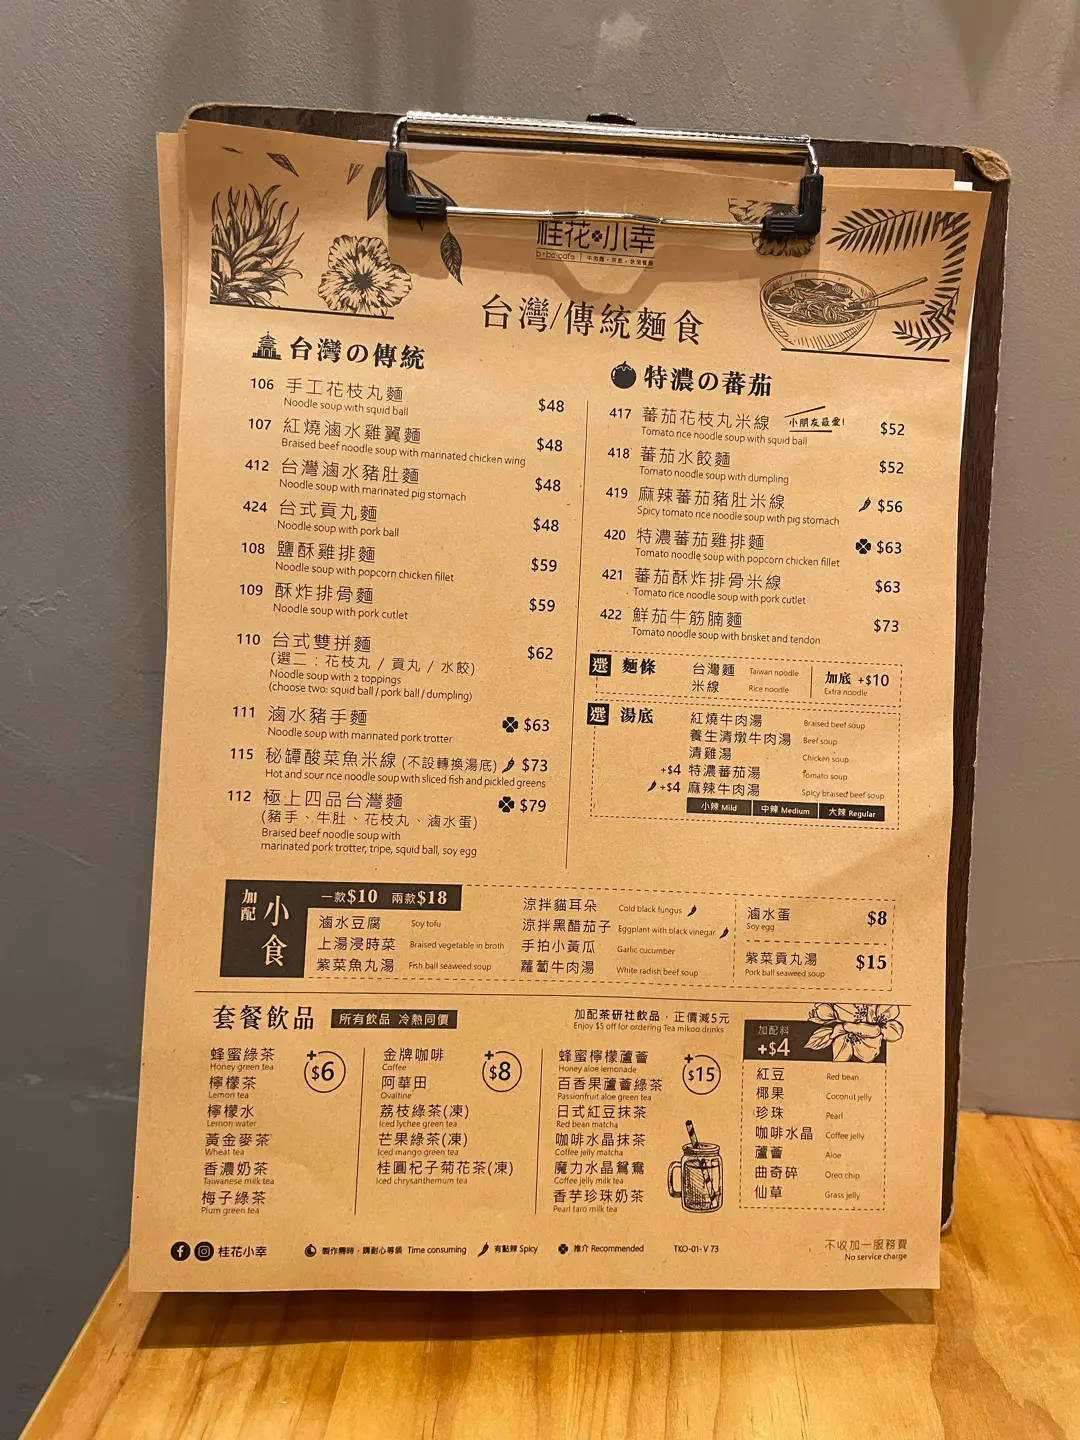 桂花小幸
b+bc cafe
台灣/傳統麵食
台灣の傳統
106 手工花枝丸麵 $48
Noodle soup with squid ball
107 紅燒滷水雞翼麵 $48
Braised beef noodle soup with marinated chicken wing
412 台灣滷水豬肚麵 $48
Noodle soup with marinated pig stomach
424 台式貢丸麵 $48
Noodle soup with pork ball
108 鹽酥雞排麵 $59
Noodle soup with popcorn chicken fillet
109 酥炸排骨麵 $59
Noodle soup with pork cutlet
110 台式雙拼麵 $62
(選二：花枝丸 / 貢丸 / 水餃)
Noodle soup with 2 toppings
(choose two: squid ball / pork ball / dumpling)
111 滷水豬手麵 $63
Noodle soup with marinated pork trotter
115 秘罈酸菜魚米線 (不設轉換湯底) $73
Hot and sour rice noodle soup with sliced fish and pickled greens
112 極上四品台灣麵 $79
(豬手、牛肚、花枝丸、滷水蛋)
Braised beef noodle soup with
marinated pork trotter, tripe, squid ball, soy egg
特濃の蕃茄
417 蕃茄花枝丸米線 小朋友最愛! $52
Tomato rice noodle soup with squid ball
418 蕃茄水餃麵 $52
Tomato noodle soup with dumpling
419 麻辣蕃茄豬肚米線 $56
Spicy tomato rice noodle soup with pig stomach
420 特濃蕃茄雞排麵 $63
Tomato noodle soup with popcorn chicken fillet
421 蕃茄酥炸排骨米線 $63
Tomato rice noodle soup with pork cutlet
422 鮮茄牛筋腩麵 $73
Tomato noodle soup with brisket and tendon
選 麵條
台灣麵 Taiwan noodle
米線 Rice noodle
加底 +$10
Extra noodle
選 湯底
紅燒牛肉湯 Braised beef soup
養生清燉牛肉湯 Beef soup
清雞湯 Chicken soup
+$4 特濃蕃茄湯 Tomato soup
+$4 麻辣牛肉湯 Spicy braised beef soup
小辣 Mild 中辣 Medium 大辣 Regular
加配 小食
一款$10 兩款$18
滷水豆腐 Soy tofu
上湯浸時菜 Braised vegetable in broth
紫菜魚丸湯 Fish ball seaweed soup
涼拌貓耳朵 Cold black fungus
涼拌黑醋茄子 Eggplant with black vinegar
手拍小黃瓜 Garlic cucumber
蘿蔔牛肉湯 White radish beef soup
滷水蛋 $8
Soy egg
紫菜貢丸湯 $15
Pork ball seaweed soup
套餐飲品 所有飲品 冷熱同價
加配茶研社飲品，正價減5元
Enjoy $5 off for ordering Tea mikoo drinks
+$6
蜂蜜綠茶
Honey green tea
檸檬茶
Lemon tea
檸檬水
Lemon water
黃金麥茶
Wheat tea
香濃奶茶
Taiwanese milk tea
梅子綠茶
Plum green tea
+$8
金牌咖啡
Coffee
阿華田
Ovaltine
荔枝綠茶(凍)
Iced lychee green tea
芒果綠茶(凍)
Iced mango green tea
桂圓杞子菊花茶(凍)
Iced chrysanthemum tea
+$15
蜂蜜檸檬蘆薈
Honey aloe lemonade
百香果蘆薈綠茶
Passionfruit aloe green tea
日式紅豆抹茶
Red bean matcha
咖啡水晶抹茶
Coffee jelly matcha
魔力水晶鴛鴦
Coffee jelly milk tea
香芋珍珠奶茶
Pearl taro milk tea
加配料
+$4
紅豆 Red bean
椰果 Coconut jelly
珍珠 Pearl
咖啡水晶 Coffee jelly
蘆薈 Aloe
曲奇碎 Oreo chip
仙草 Grass jelly
桂花小幸
製作需時，請耐心等候 Time consuming
有點辣 Spicy
推介 Recommended
TKO-01- V 73
不收加一服務費
No service charge